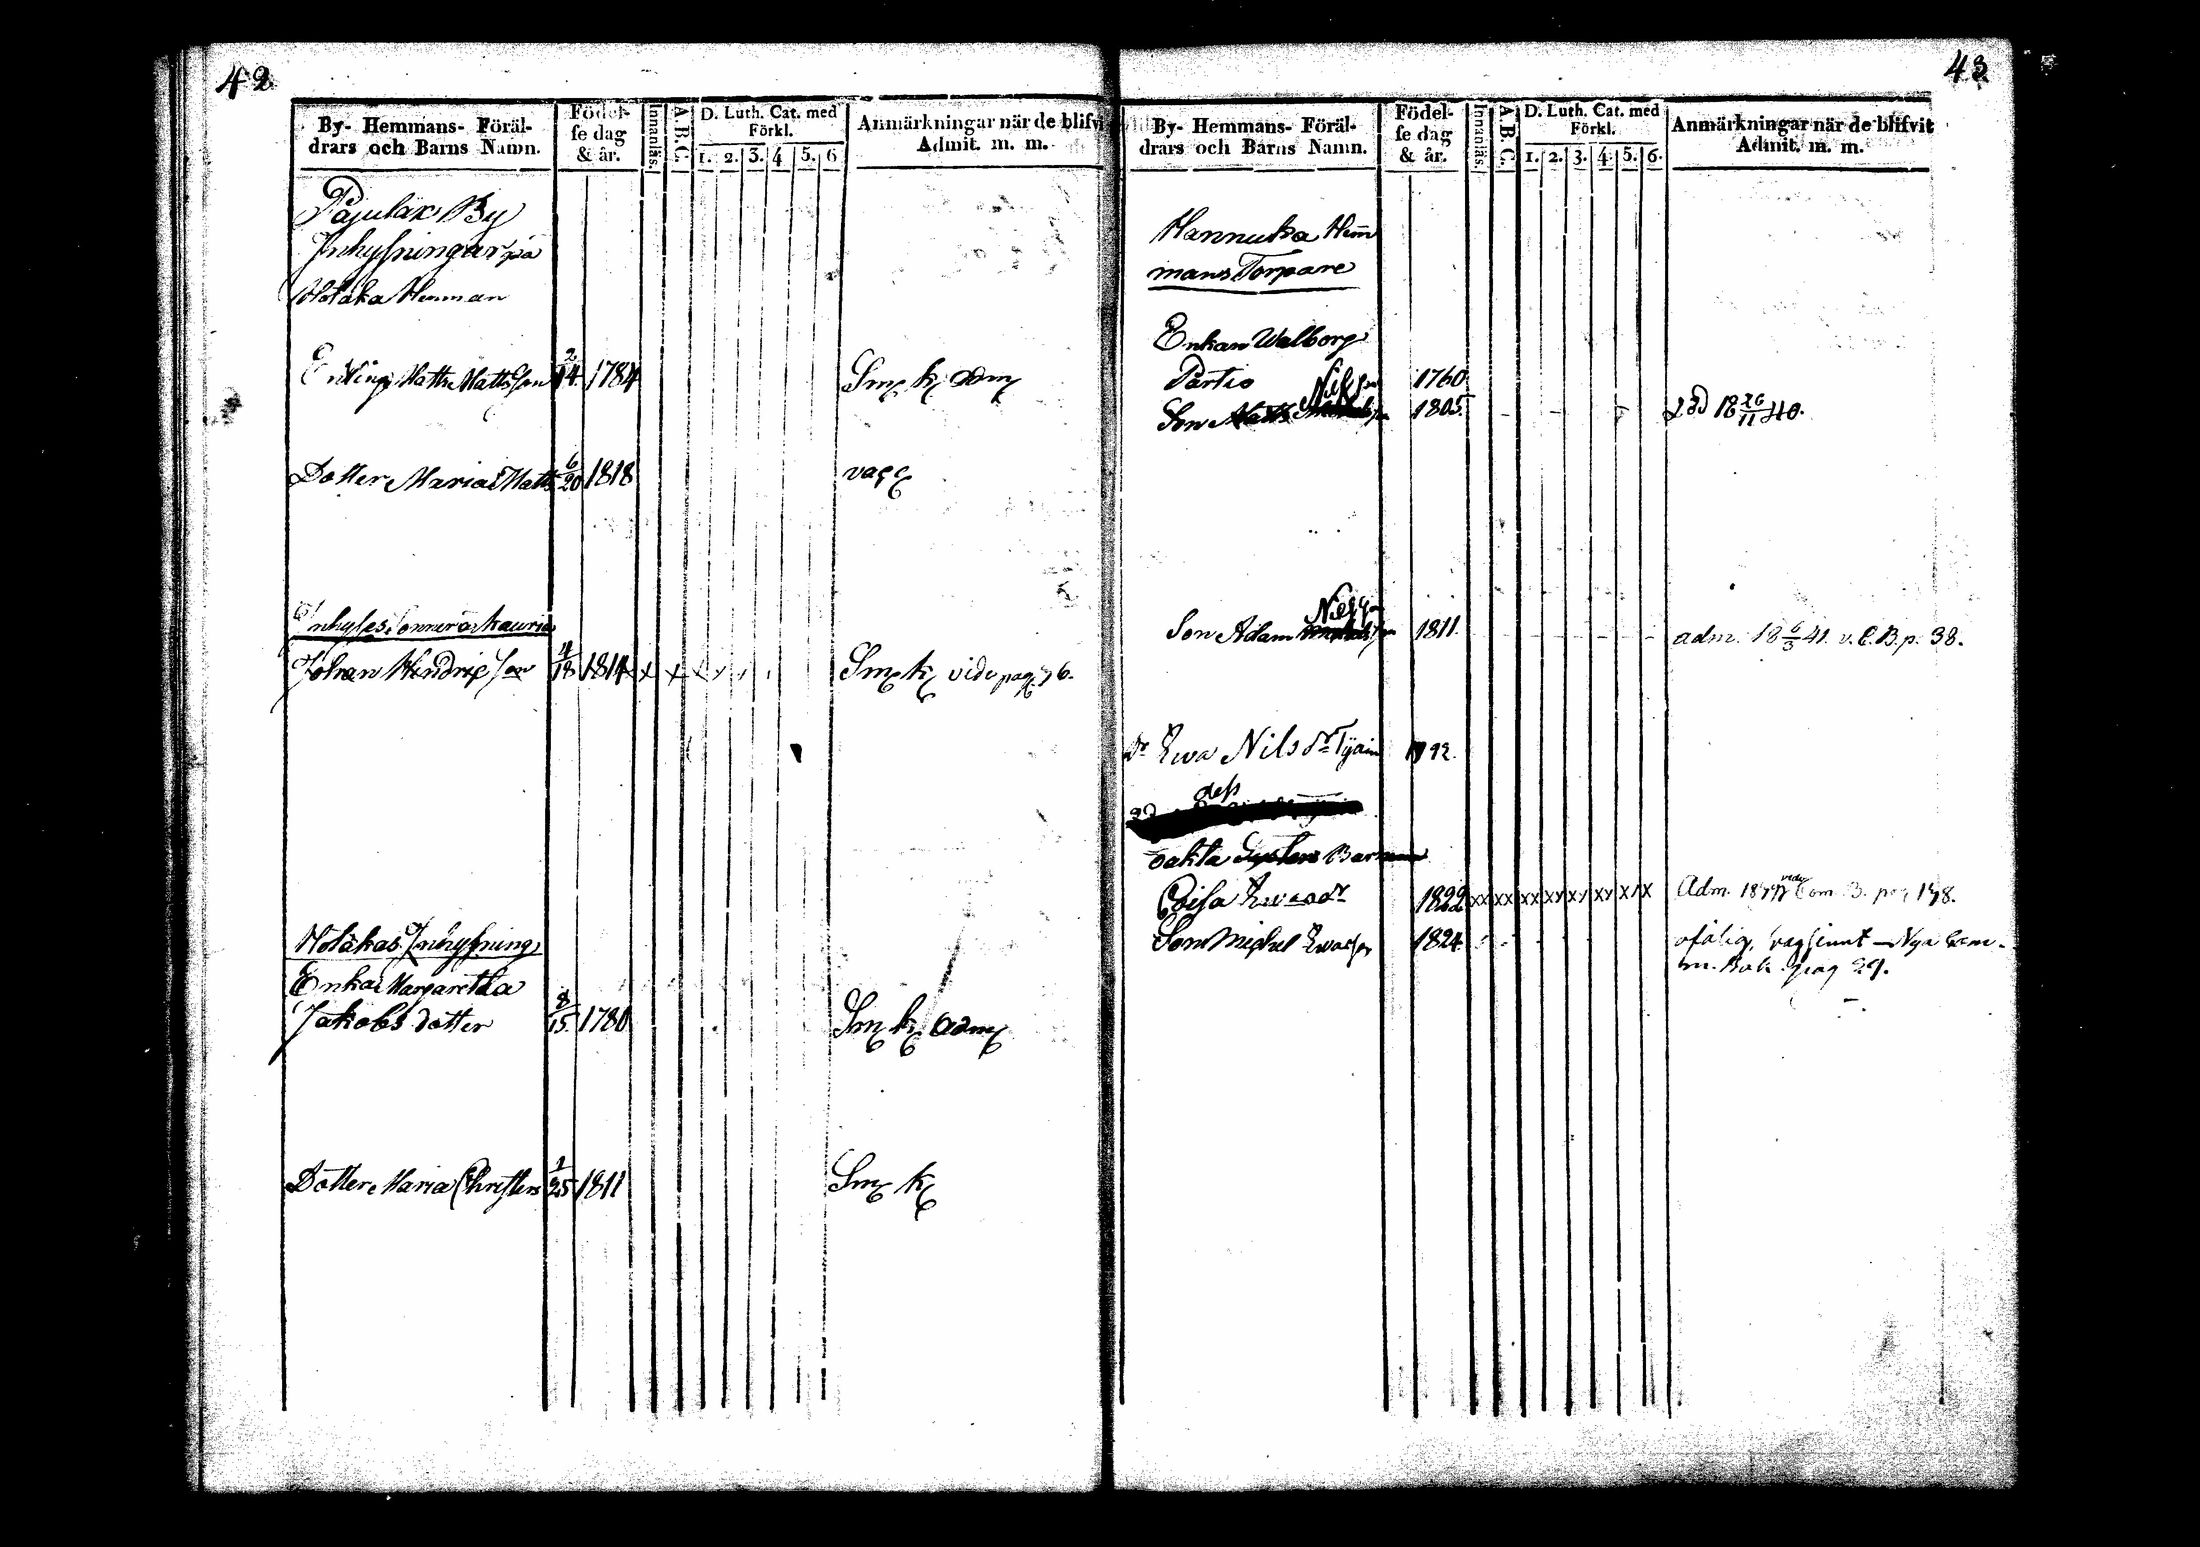 42
By- Hemmans- Föräl-
drars och Barns Namn.
Födel-
se dag
& år.
Innanläs.
A.B.C.
D. Luth. Cat. med
Förkl.
1. 2. 3. 4 5. 6
Anmärkningar när de blifvi
Admit. m. m.
Pajulax By
Inhysningar på
Holaka Hemman
Enkling Matts Mattsson 2/14 1784 Smk adm
Dotter Maria Matts 6/20 1818 vacc
Inhyses
Johan Hendrixson 4/18 1814 x x x x Smk vide pag. 76.
Holakas Inhysning
Enka Margaretha
Jakobs dotter 8/15 1780 Sm k adm
Dotter Maria Christers 1/25 1811 Sm k
43
By- Hemmans- Föräl-
drars och Barns Namn.
Födel-
se dag
& år.
Innanläs.
A.B.C.
D. Luth. Cat. med
Förkl.
1. 2. 3. 4. 5. 6.
Anmärkningar när de blifvit
Admit. m. m.
Hannuka Hem
mans Torpare
Enkan Walborg
Partio 1760
Nilsson
Son Matts 1805 död 18 26/11 40.
Nilsson
Son Adam 1811. adm. 18 6/3 41. v. C.B.p. 38.
Dr Ewa Nils dr 1792.
dess
oäkta Barn
Loisa Ewædr 1822 xx xx xx xx xx xx xxx Adm. Com. B. pag 178.
Son Michel Ewæson 1824 ofälig, vaccinat - Nya Com-
m. Bok pag 29.